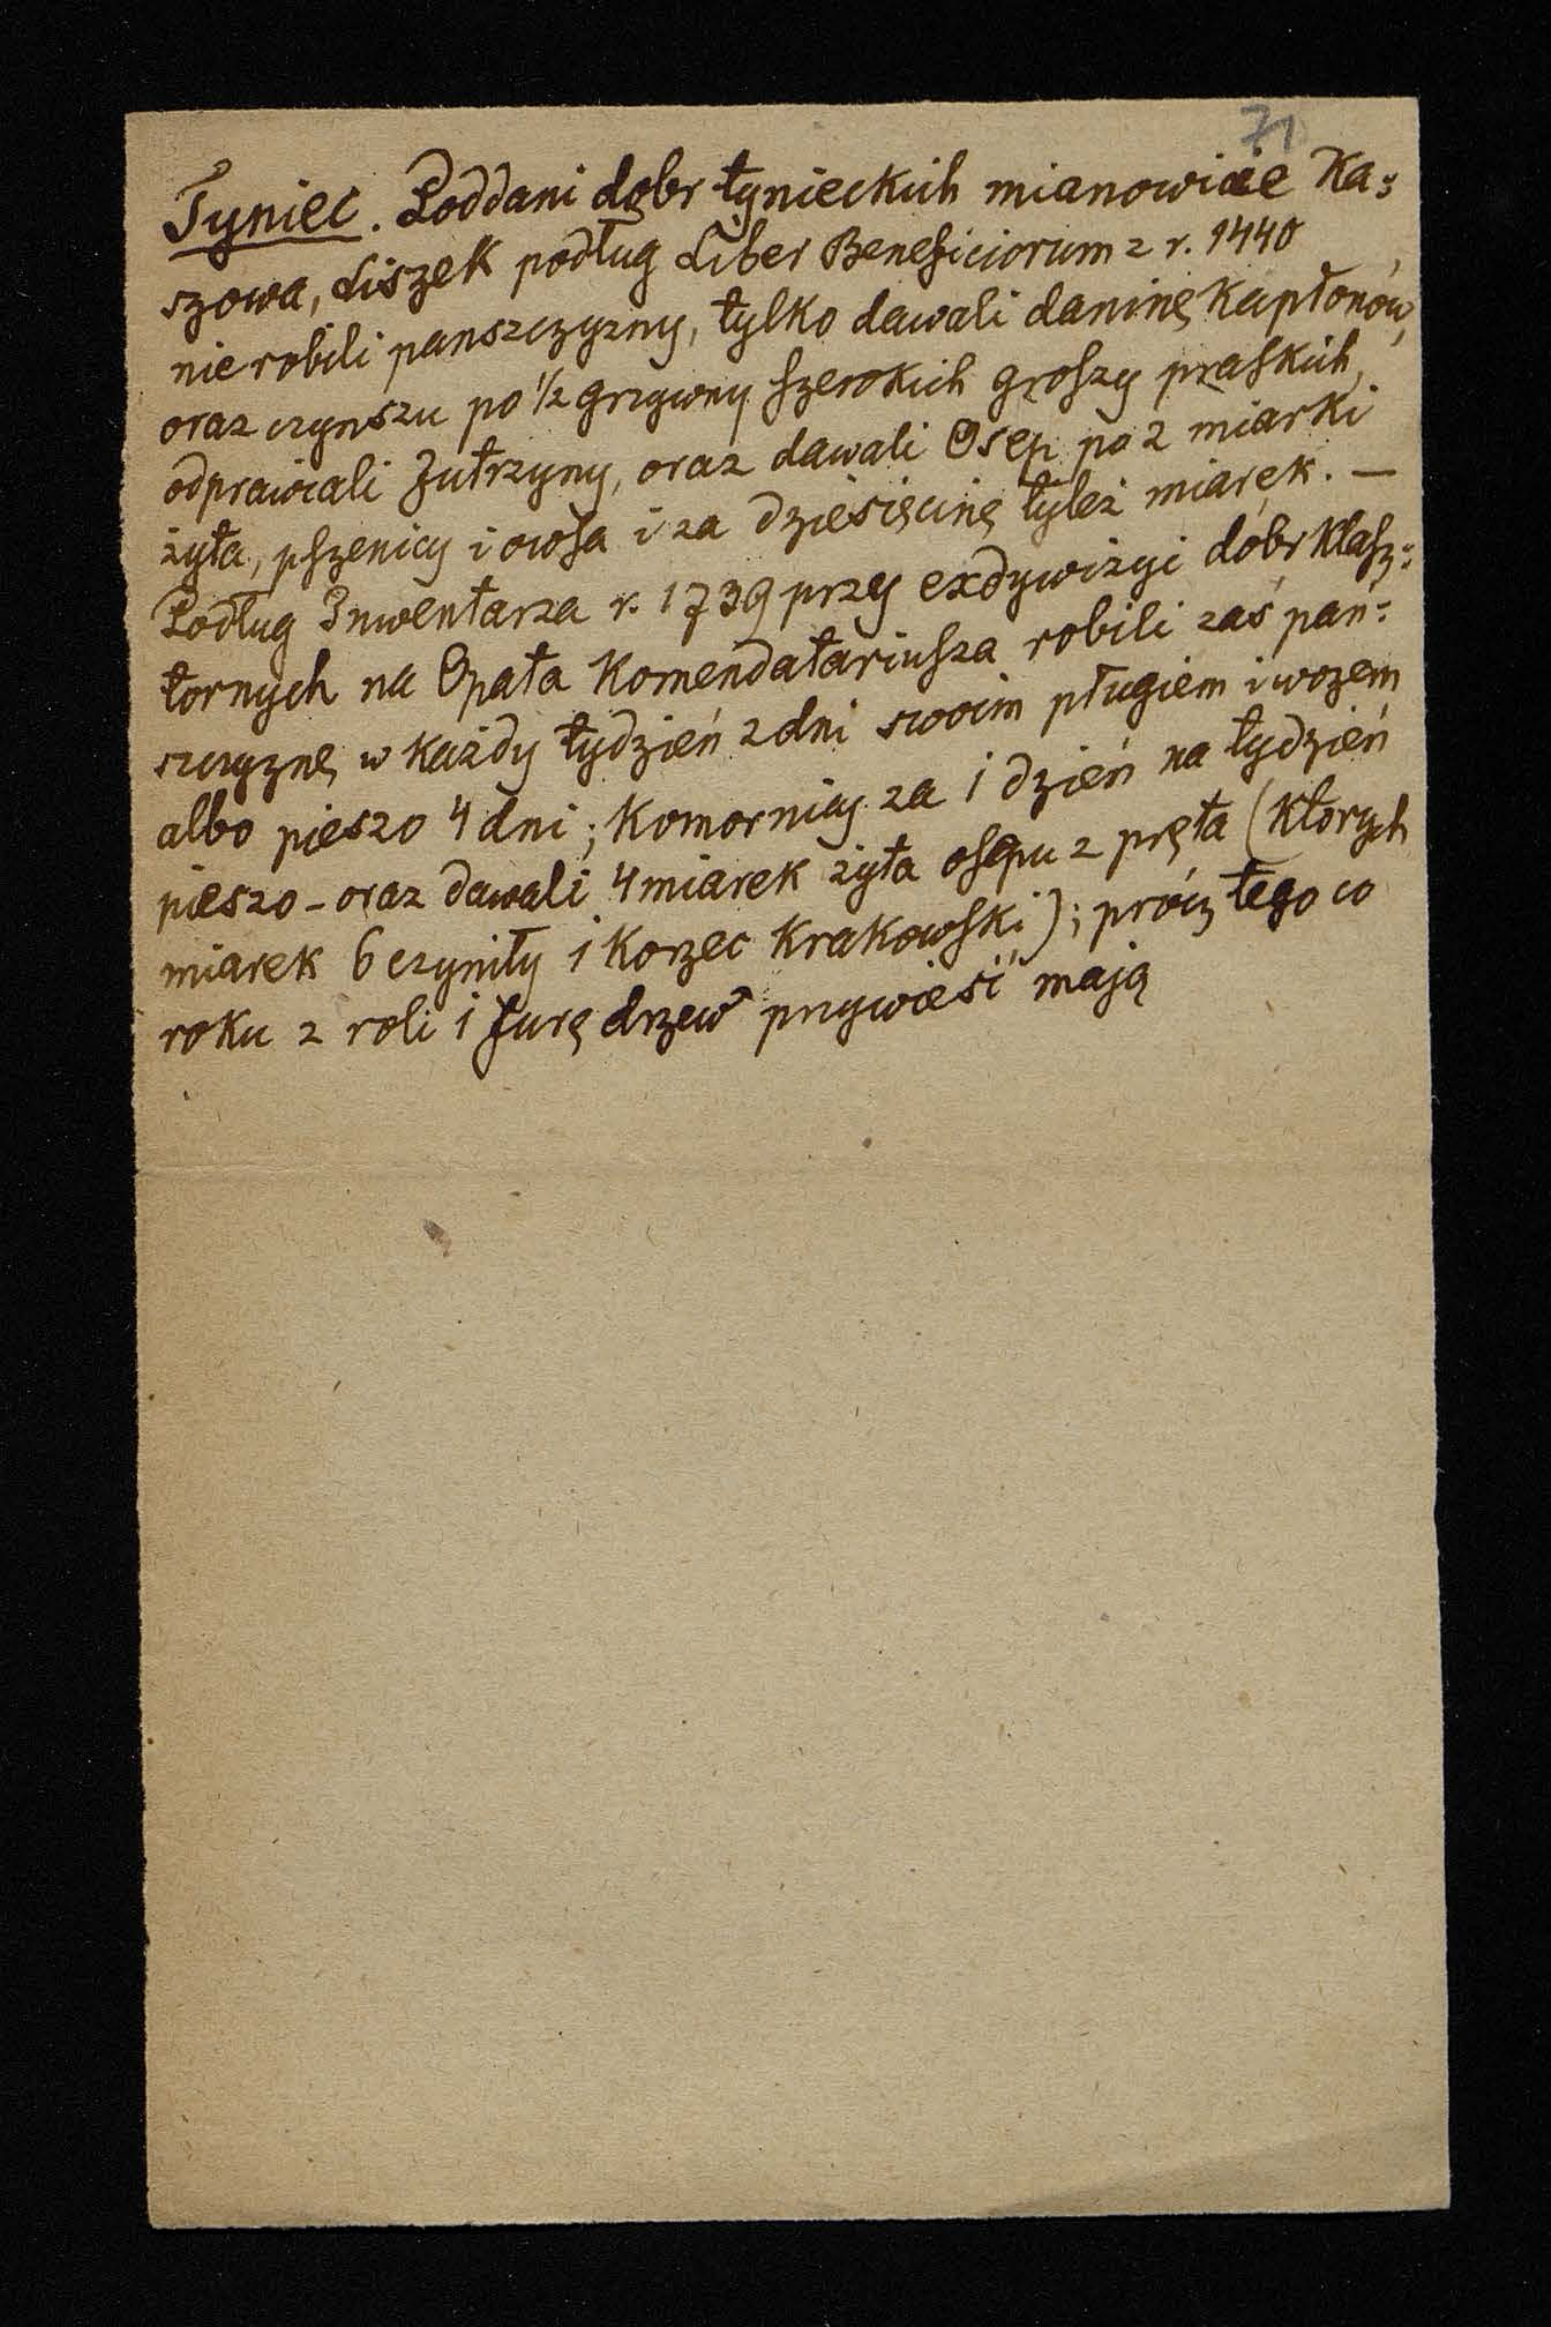 71
Tyniec. Poddani dobr tynieckich mianowicie Ka=
szowa, Liszek podług Liber Beneficiorum z r. 1440
nie robili panszczyzny, tylko dawali daninę kapłonów,
oraz czynszu po ½ grzywny szerokich groszy praskich,
odprawiali Jutrzyny, oraz dawali Osep po 2 miarki
żyta, pszenicy i owsa i za dziesięcinę tyleż miarek. —
Podług Inwentarza r. 1739 przy exdywizyi dóbr klasz=
tornych na Opata Komendatariusza robili zaś pań=
szczyznę w każdy tydzień 2 dni swoim pługiem i wozem
albo pieszo 4 dni; Komornicy za 1 dzień na tydzień
pieszo - oraz dawali 4 miarek żyta osepu z pręta (których
miarek 6 czyniły 1 korzec krakowski); prócz tego co
roku z roli 1 furę drzew przywieść mają